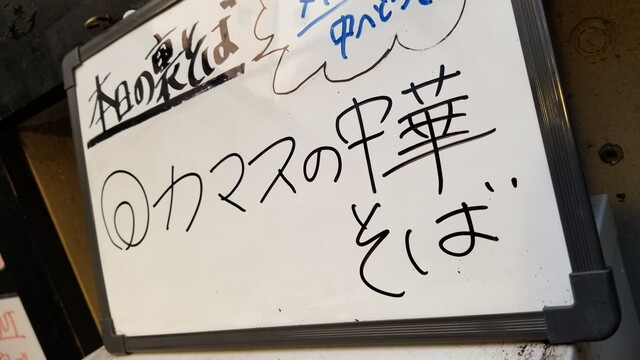 本日の裏そば
中へどうぞ
◎カマスの中華
そば